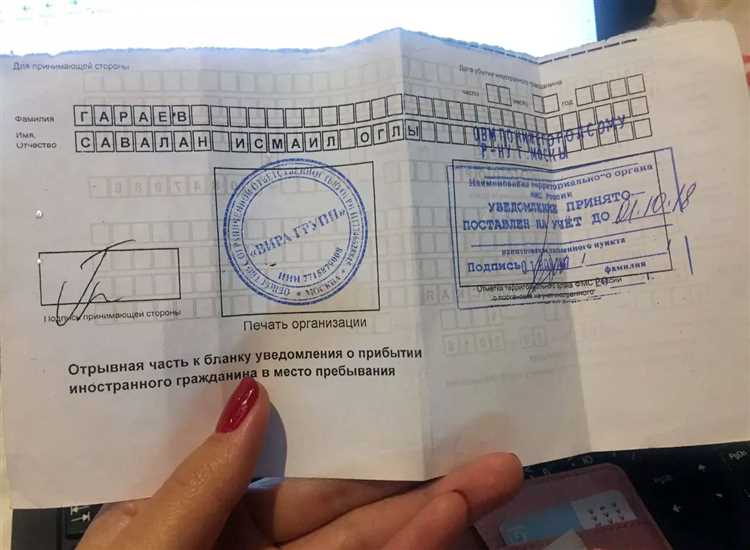 Для принимающей стороны
Дата убытия иностранного гражданина
число месяц год
Фамилия ГАРАЕВ
Имя, Отчество САВАЛАН ИСМАИЛ ОГЛЫ
Р-НУ Г. МОСКВЫ
Наименование территориального органа
ФМС России
УВЕДОМЛЕНИЕ ПРИНЯТО
ПОСТАВЛЕН НА УЧЁТ ДО 01.10.18
наименование населенного пункта
Подпись
фамилия
«ВИРА ГРУПП»
ИНН
МОСКВА
Подпись принимающей стороны
Печать организации
Отметка территориального органа ФМС России
о постановке на учет иностранного
Отрывная часть к бланку уведомления о прибытии
иностранного гражданина в место пребывания
PgUp
PgDn